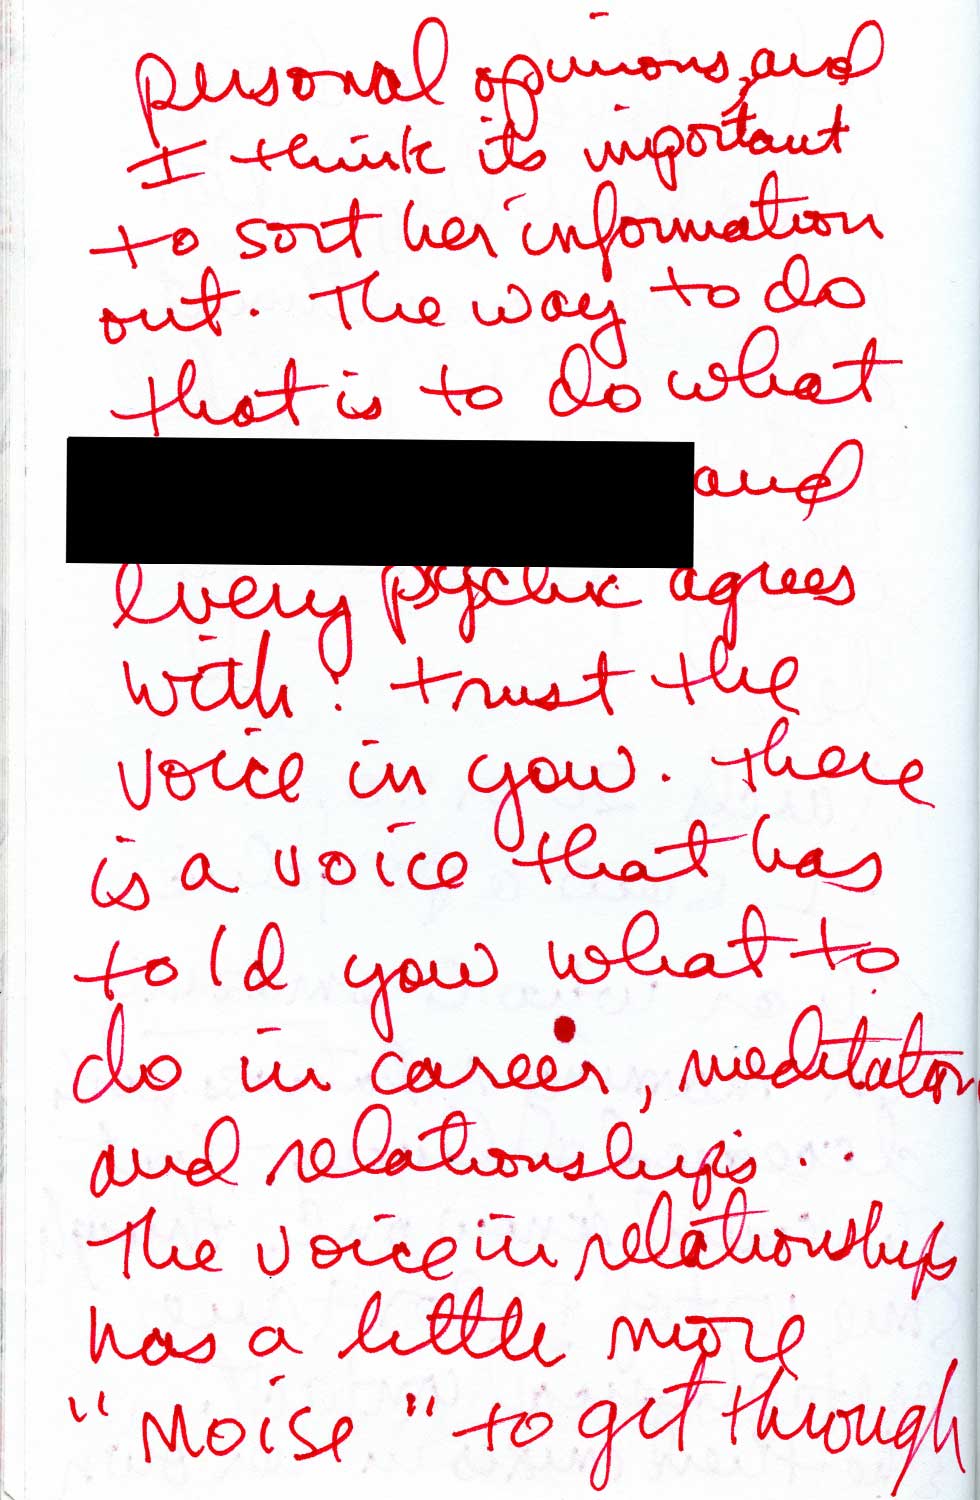 personal opinions, and
I think its important
to sort her information
out. The way to do
that is to do what
and
every psychic agrees
with: trust the
voice in you. there
is a voice that has
told you what to
do in career, meditation
and relationships...
The voice in relationships
has a little more
"Noise" to get through